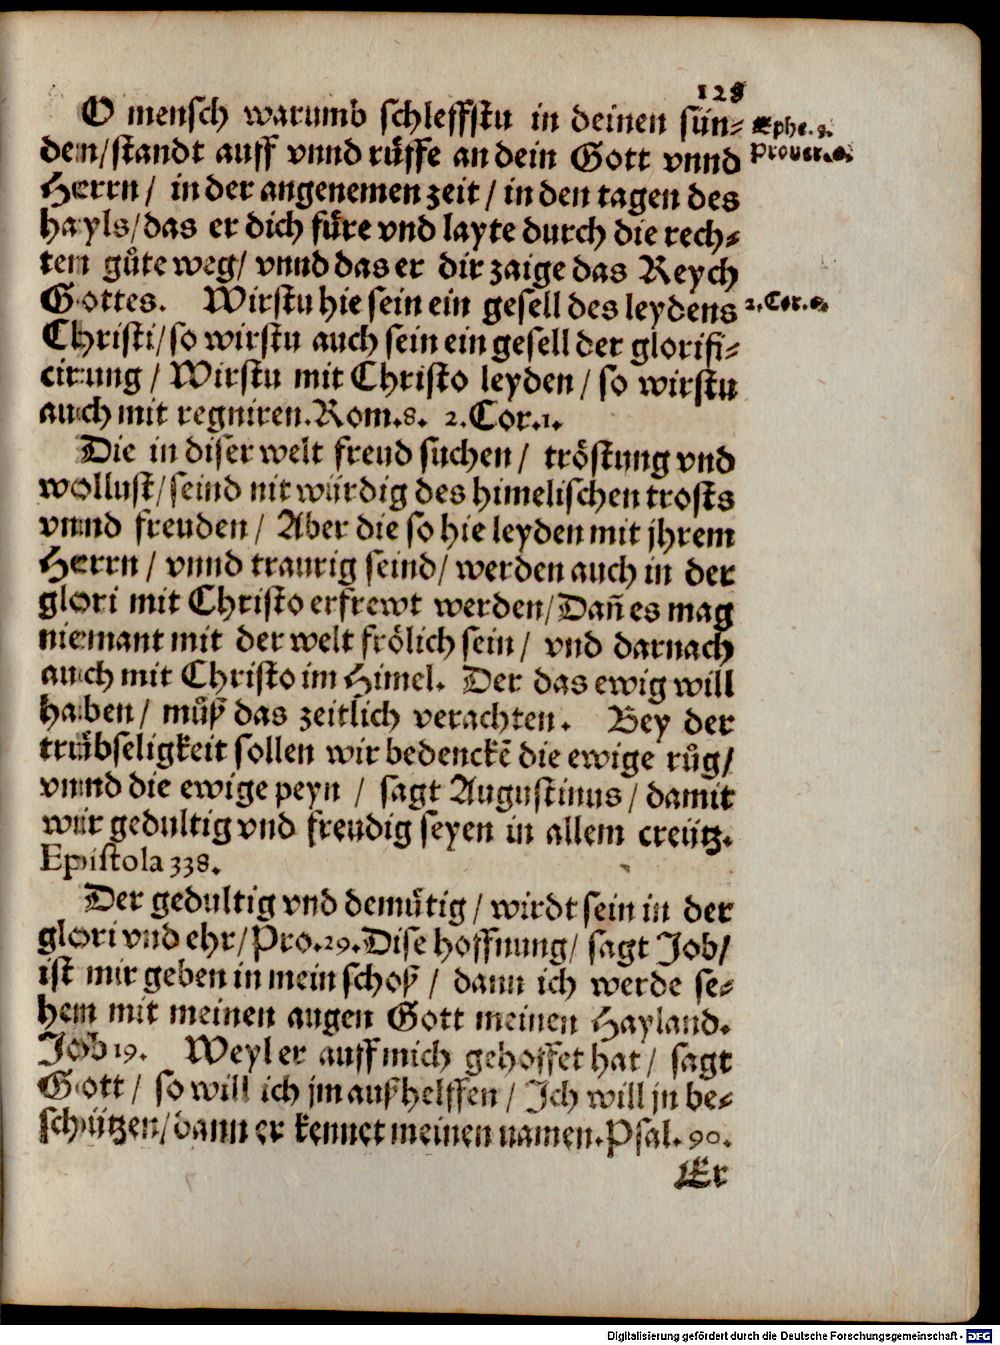 128
O mensch warumb schleffstu in deinen sün-
den/standt auff vnnd rüffe an dein Gott vnnd
Herrn/ in der angenemen zeit/in den tagen des
hayls/das er dich füre vnd layte durch die rech-
ten gůte weg/ vnnd das er dir zaige das Reych
Gottes. Wirstu hie sein ein gesell des leydens
Christi/so wirstu auch sein ein gesell der glorifi-
cirung/ Wirstu mit Christo leyden/ so wirstu
auch mit regniren.Rom.8. 2.Cor.1.
Die in diser welt freud suchen/ tröstung vnd
wollust/seind nit würdig des himelischen trosts
vnnd freuden/ Aber die so hie leyden mit jhrem
Herrn/ vnnd traurig seind/ werden auch in der
glori mit Christo erfrewt werden/Dañ es mag
niemant mit der welt frölich sein/ vnd darnach
auch mit Christo im Himel. Der das ewig will
haben/ můß das zeitlich verachten. Bey der
trübseligkeit sollen wir bedenckẽ die ewige růg/
vnnd die ewige peyn / sagt Augustinus/ damit
wür gedultig vnd freudig seyen in allem creütz.
Epistola 338.
Der gedultig vnd demütig/ wirdt sein in der
glori vnd ehr/Pro.29.Dise hoffnung/ sagt Job/
ist mir geben in mein schoß/ dann ich werde se-
hem mit meinen augen Gott meinen Hayland.
Job 19. Weyl er auff mich gehoffet hat/ sagt
Gott/ so will ich jm außhelffen/ Ich will jn be-
schützen/dann er kennet meinen namen.Psal.90.
Er
Ephe.
Prouer.
2.Cor.
Digitalisierung gefördert durch die Deutsche Forschungsgemeinschaft - DFG